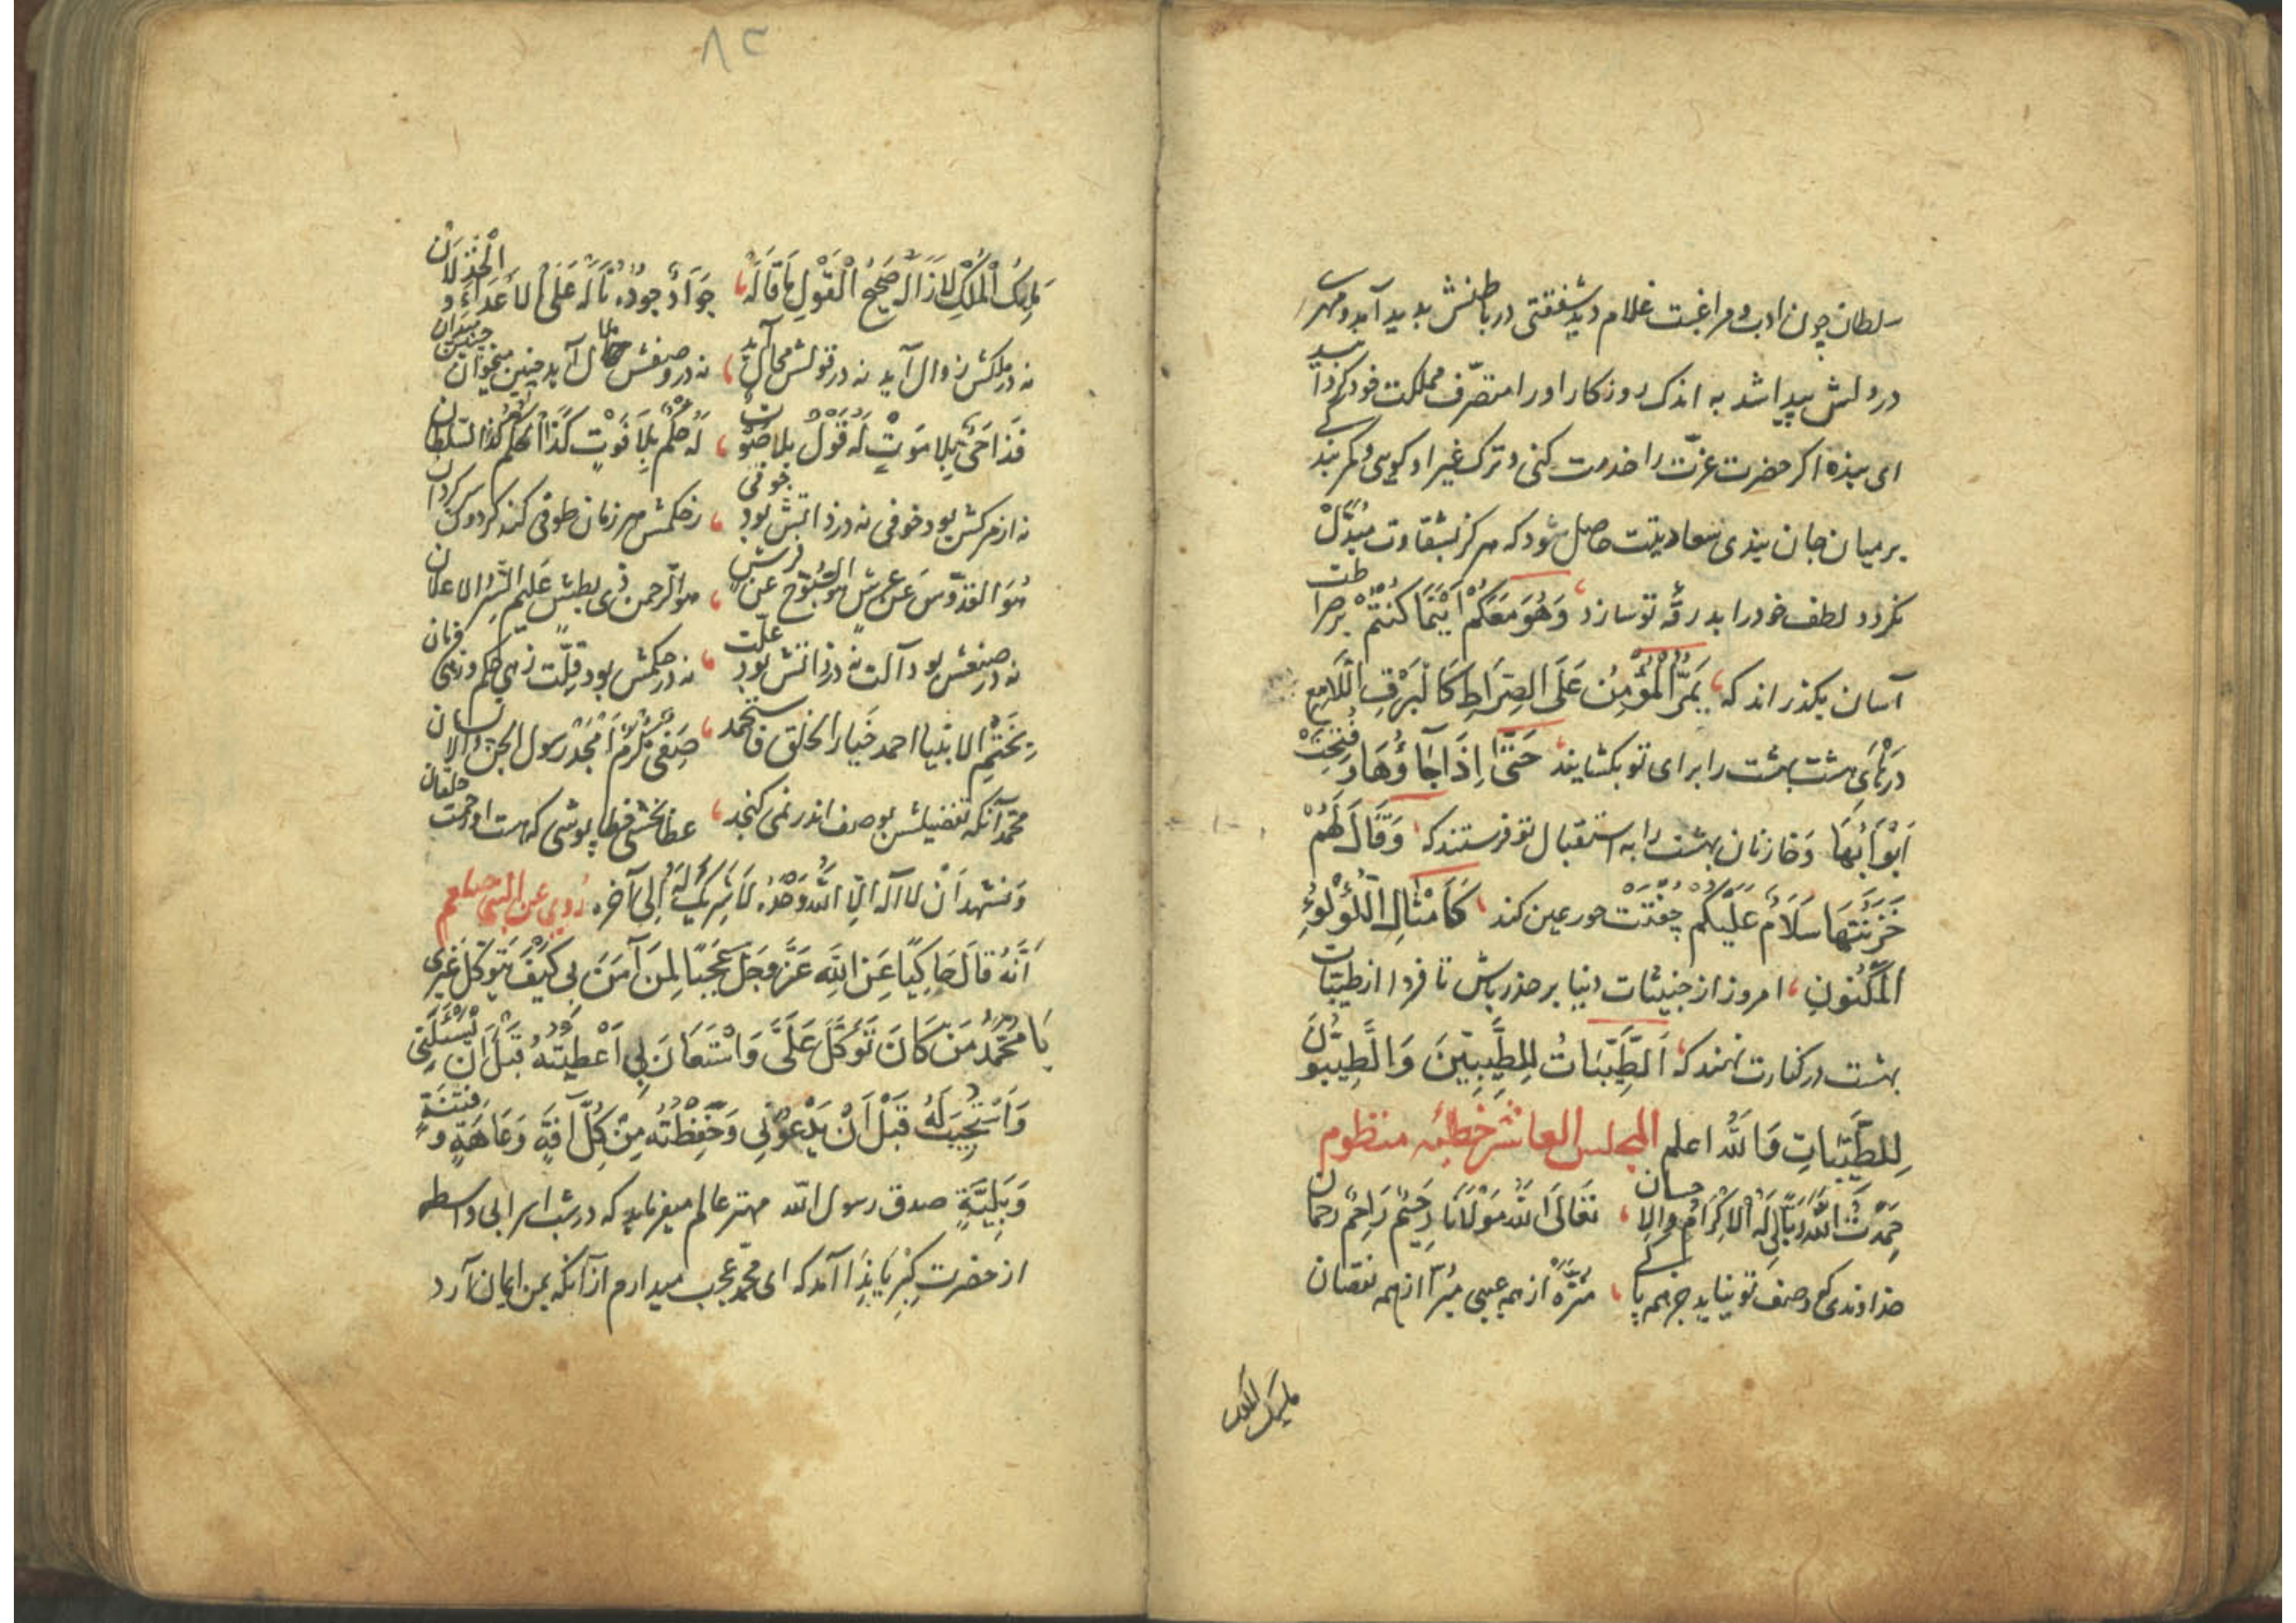 سلطان چون ادب و مراغبت غلام دید شفقتی در باطنش پدید آمد و مهری
در دلش پیدا شد به اندک روزکار او را متصرّف مملکت خود کردانید
ای بنده اکر حضرت عزّت را خدمت کنی و ترک غیر او کویی و کمر بندکی
بر میان جان بندی سعادتیت حاصل شود که هرکز بشقاوت مُبَدَّلْ
نکردد لطف خود را بدرقهٔ تو سازد وَهُوَ مَعَكُمْ اَيْنَمَا كُنْتُمْ بر صراطت
آسان بکذراند که يَمُرُّ الْمُؤْمِنُ عَلَى الصِّرَاطِ كَالْبَرْقِ الَّلامِعِ
درهای هشت بهشت را برای تو بکشایند حَتَّى اِذَا جَاؤُهَا وَفُتِحَتْ
اَبْوَابُهَا وَخازنان بهشت را به استقبال تو فرستند که وَقَالَ لَهُمْ
خَزَنَتُهَا سَلَامٌ عَلَيْكُمْ جفتت حور عین کند كَاَمْثَالِ اللُّؤْلُوءِ
الْمَكْنُونِ امروز از خبیثات دنیا بر حذر باش تا فردا از طیبات
بهشت در کنارت نهند که اَلطَّيِّبَاتُ لِلطَّيِّبِينَ وَالطَّيِّبُونَ
لِلطَّيِّبَاتِ وَاللهُ اعلم المجلس العاشر خطبه منظوم
حَمِدْتُ اللهَ رَبًّا لِي لَهُ الْاِكْرَامُ وَالْاِحسان تَعَالَى اللهُ مَوْلَانَا رَحِيمٌ رَاحِمٌ رَحمان
خداوندی که وصف تو نیاید جز همه پاکی منزّه از همه عیبی مبرّا از همه نقصان
ملیک الملک
٨٣
مَلِيكُ الْمُلْكِ لَا زَالَ لَهُ صَحِيحُ الْقَوْلِ مَا قَالَهُ جَوَادٌ جُودُه نَالَهُ عَلَى الْاَعْدَاءِ وَ الْخَذلَانْ
نه در ملکش زوال آید نه در قولش محال آید نه در وصفش خیال آید چنین میخوان چنین میدان
فَذَا حَيٌّ بِلَا مَوْتٍ لَهُ قَوْلٌ بِلَا صَوْتٍ لَهُ حُكْمٌ بِلَا فَوْتٍ كَذَا الْحُكْمُ كَذَا السّلطان
نه از مرکش بود خوفی نه در ذاتش بود جوفی ز حکمش هر زمان طوفی کند کردون سرکردان
هُوَ القدّوس عَن عرش هُوَ السُّبّوح عن فرش هو الرّحمن ذی بطش علیم السّر والاعلان
نه در صنعش بود آلت نه در ذاتش بود علّت نه در حکمش بود قِلّت زهی حکم و زهی فرمان
بِخَتْمِ الانبیا احمد خَیار الخلق فَاستَحمد صَفِیٌّ مُکْرَمٌ اَمْجَدْ رسول الجنّ والانسان
محمّد آنکه تفضیلش بوصف اندر نمی کنجد عطا بخشی خطا پوشی که هست او رحمت خلقان
وَنشهد اَنْ لا اله الّا اللهُ وَحْدَهُ لَا شَرِيكَ لَهُ اِلٰی آخره رُوِیَ عن النبی صلعم
اَنَّهُ قَالَ حَاكِيًا عَنِ اللهِ عَزَّ وَجَلَّ عَجَبًا لِمَنْ آمَنَ بِي كَيْفَ يَتَوَكَّلُ غَيْرِى
يَا مُحَمَّدُ مَنْ كَانَ تَوَكَّلَ عَلَىَّ وَاسْتَعَانَ بِي اَعْطَيْتُهُ قَبْلَ اَنْ يَسْئَلَنِى
وَاَسْتَجِيبُ لَهُ قَبْلَ اَنْ يَدْعُوَنِي وَحَفِظْتُهُ مِنْ كُلِّ آفَةٍ وَعَاهَةٍ وَفِتْنَةٍ
وَبَلِيَّةٍ صدق رسول الله مهتر عالم میفرماید که در شب اسرا بی واسطه
از حضرتِ کبریا نِدَا آمد که ای محمّد عجب میدارم از آنکه بمن ایمان آرد